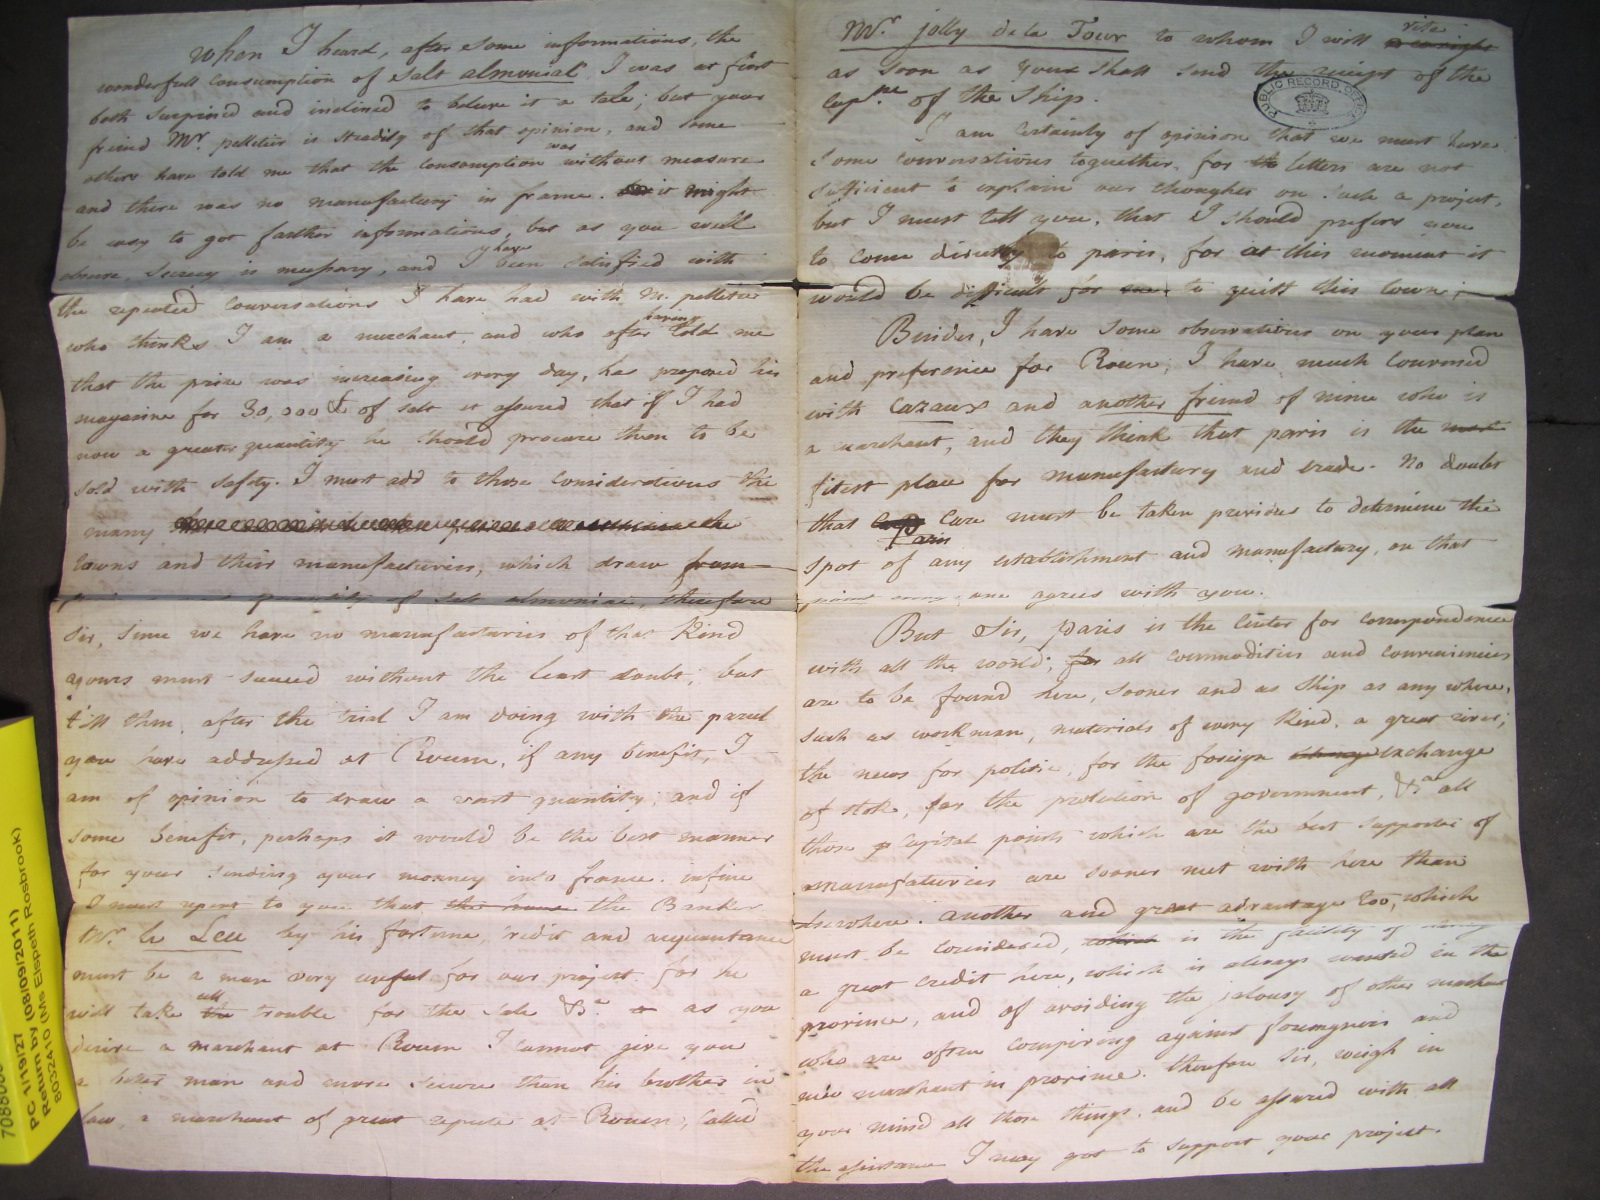 when I heard, after some informations, the
wonderfull consumption of salt almonial I was at first
both surprised and inclined to beleive it a tale; but your
friend Mr. pelletier is steadily of that opinion, and some
others have told me that the consumption was without measure
and there was no manufactury in france. it might
be easy to got farther informations, but as you well
observe, secrecy is nessary, and I have been satisfied with
the repeated conversations I have had with M. pelletier
who thinks I am a merchant, and who after having told me
that the price was increasing every day, has proposed his
magasine for 30,000 ₶ of salt & assured that if I had
now a greater quantity he should procure them to be
sold with safety. I must add to those considerations the
many
towns and their manufacturies, which draw from
quantity of salt almoniac, therefore
Sir, since we have no manufacturies of that Kind
yours must succeed without the least doubt; but
till then, after the trial I am doing with the parcel
you have addressed at Rouen, if any benefit, I
am of opinion to draw a vast quantity; and if
some benefit, perhaps it would be the best manner
for your sending your monney into france. infine
I must repeat to you that the house the Banker
Mr. le Leu by his fortune, credit and acquantance
must be a man very useful for our project. for he
will take all the trouble for the sale &a. as you
desire a marchant at Rouen I cannot give you
a better man and more secure than his brother in
law, a marchant of great repute at Rouen, called
Mr. jolly de la Tour to whom I will rite
as soon as your shall send the recipt of the
Capne. of the ship.
I am certainly of opinion that we must have
some conversations toguether, for letters are not
sufficient to explain our thougher on such a project,
but I must tell you, that I should prefers you
to come directly to paris, for at this moment it
would be difficult for me to quitt this town;
Besides, I have some observations on your plan
and preference for Rouen; I have much conversed
with Cazaux and another friend of mine who is
a marchant, and they think that paris is the most
fitest place for manufactury and trade. No doubt
that care must be taken previous to determine the
Paris
spot of any establishment and manufactury, on that
point every one agrees with you.
But Sir, paris is the center for correspondence
with all the world; for all commodities and conveniencies
are to be found here, sooner and as ship as any where,
such as workman, materials of every Kind, a great river;
the news for politic, for the foreign exchange
of stok, for the protection of government, &a. all
those capital points which are the best supporter of
manufacturies are sooner met with here than
elsewhere. another and great advantage too, which
must be considered, which is the facility of
a great credit here, which is always wanted in the
province, and of avoiding the jalousy of other marchant
who are often conspiring against foreingners and
new marchant in province. therefore Sir, weigh in
your mind all those things, and be assured with all
the assistance I may got to support your project.
PUBLIC RECORD OFFICE
PC 1/19/27
Return by (08/09/2011)
8032410 (Ms Elspeth Rosbrook)